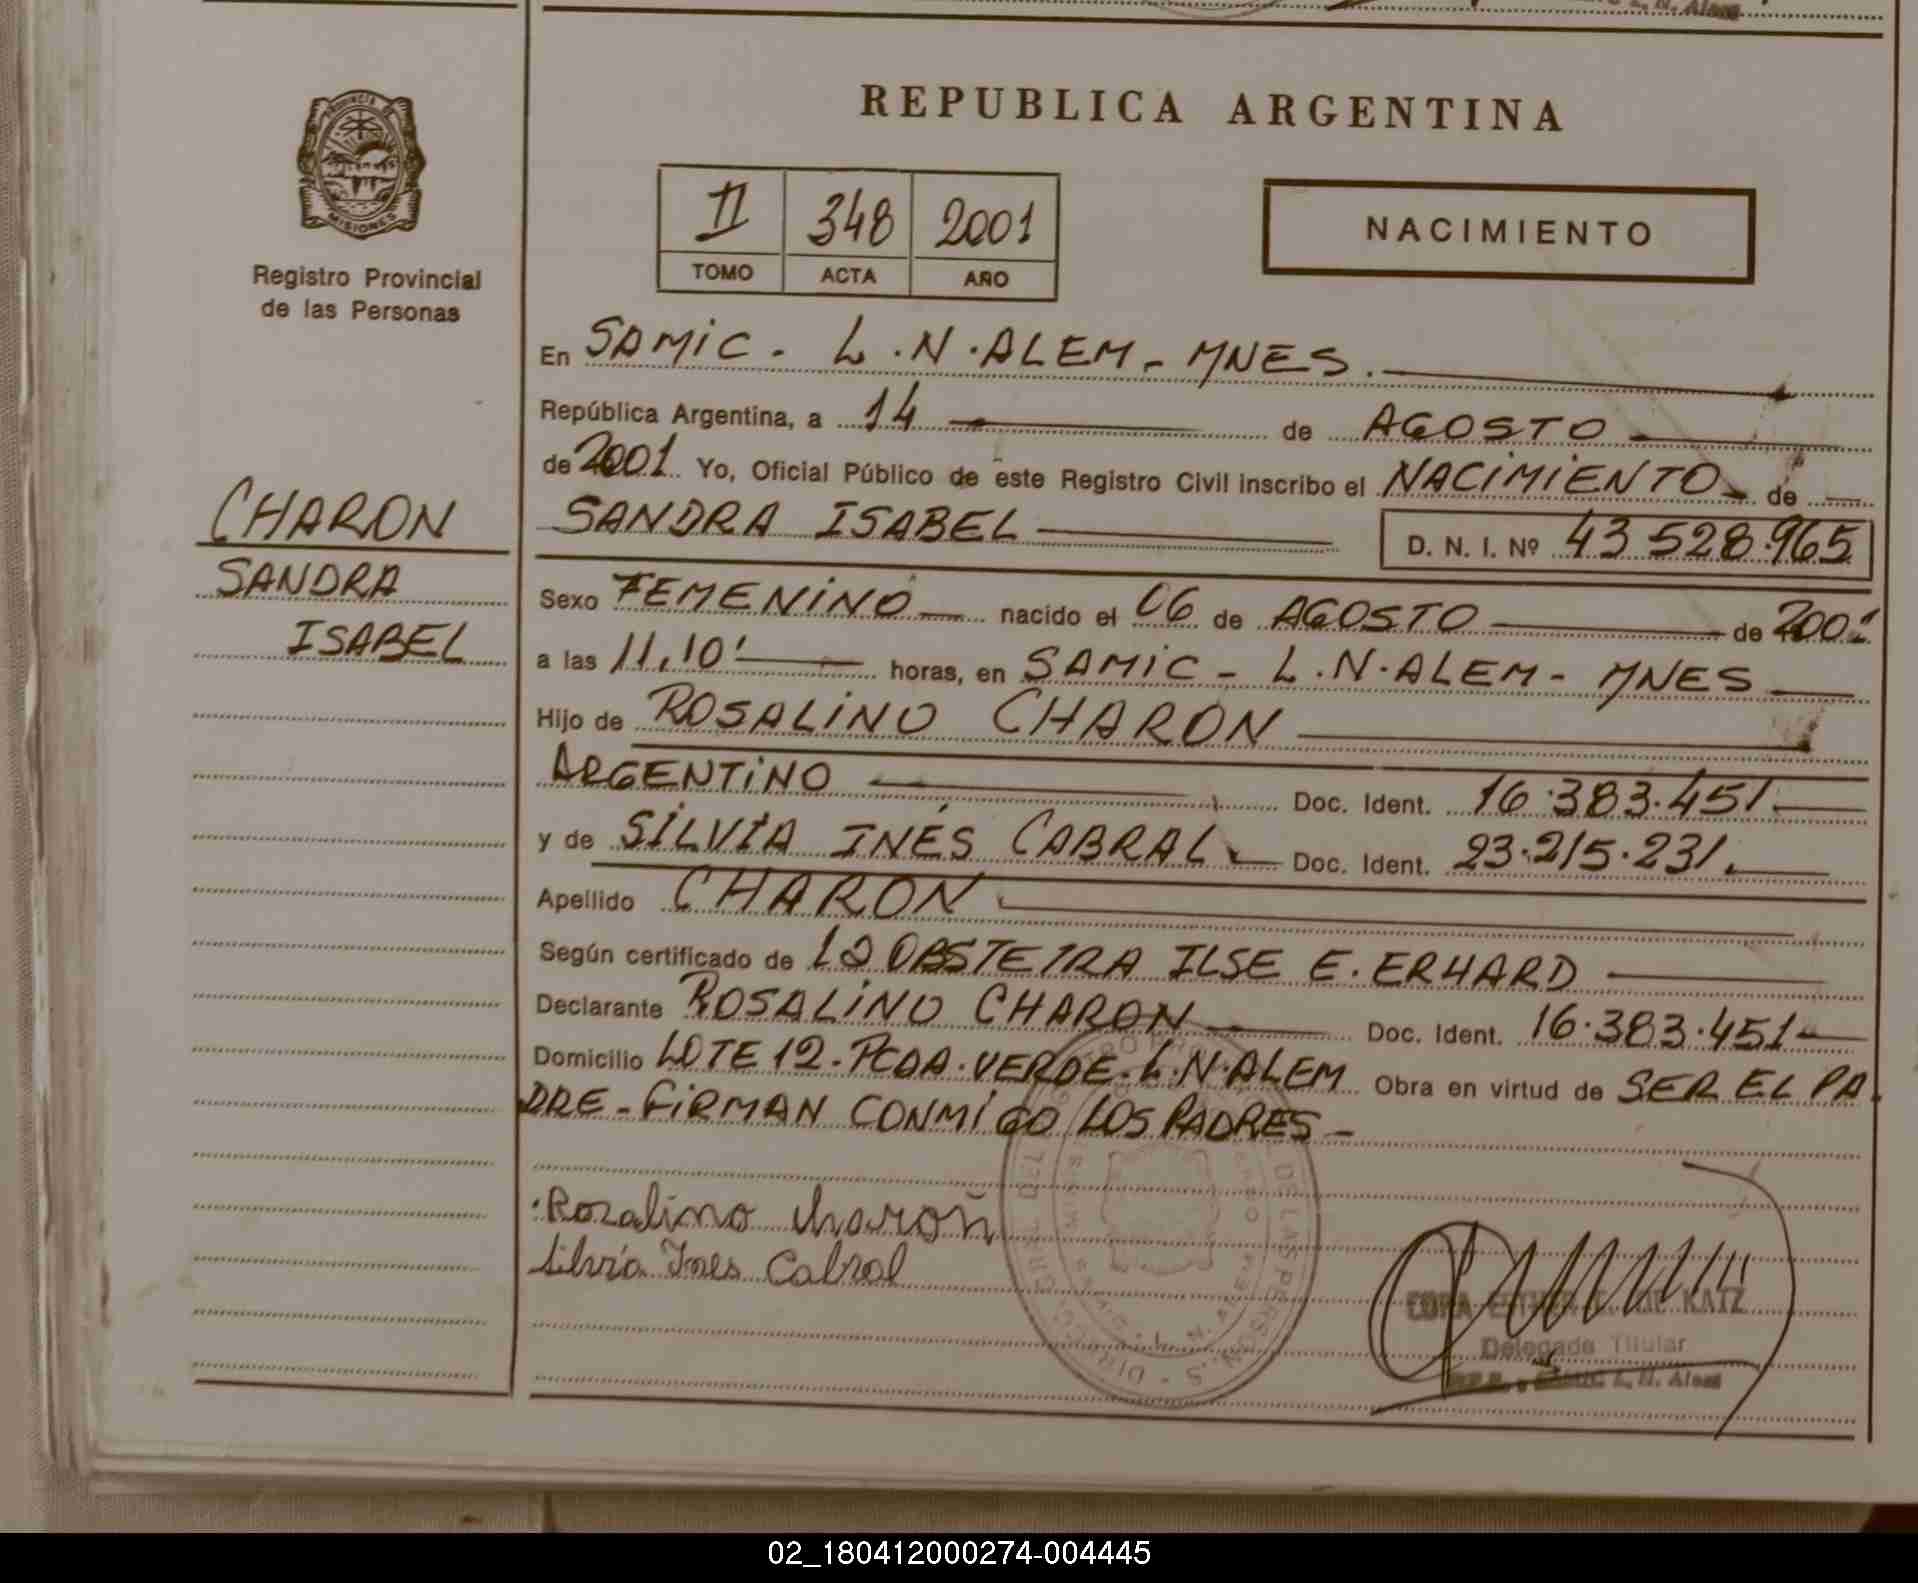 REPUBLICA ARGENTINA
PROVINCIA DE
MISIONES
Registro Provincial
de las Personas
II 348 2001
TOMO ACTA AÑO
NACIMIENTO
En SAMIC - L.N.ALEM - MNES.
República Argentina, a 14 de AGOSTO
de 2001 Yo, Oficial Público de este Registro Civil inscribo el NACIMIENTO de
SANDRA ISABEL D. N. I. Nº 43 528.965
CHARON
SANDRA
ISABEL
Sexo FEMENINO nacido el 06 de AGOSTO de 2001
a las 11,10' horas, en SAMIC - L.N.ALEM - MNES
Hijo de ROSALINO CHARON
ARGENTINO Doc. Ident. 16.383.451
y de SILVIA INÉS CABRAL Doc. Ident. 23.215.231
Apellido CHARON
Según certificado de la OBSTETRA ILSE E. ERHARD
Declarante ROSALINO CHARON Doc. Ident. 16.383.451
Domicilio LOTE 12 - PCDA. VERDE - L.N.ALEM Obra en virtud de SER EL PA
DRE - FIRMAN CONMIGO LOS PADRES -
Rozalino charon
Silvia Ines Cabral
KATZ
Delegada Titular
L. N. Alem
02_180412000274-004445